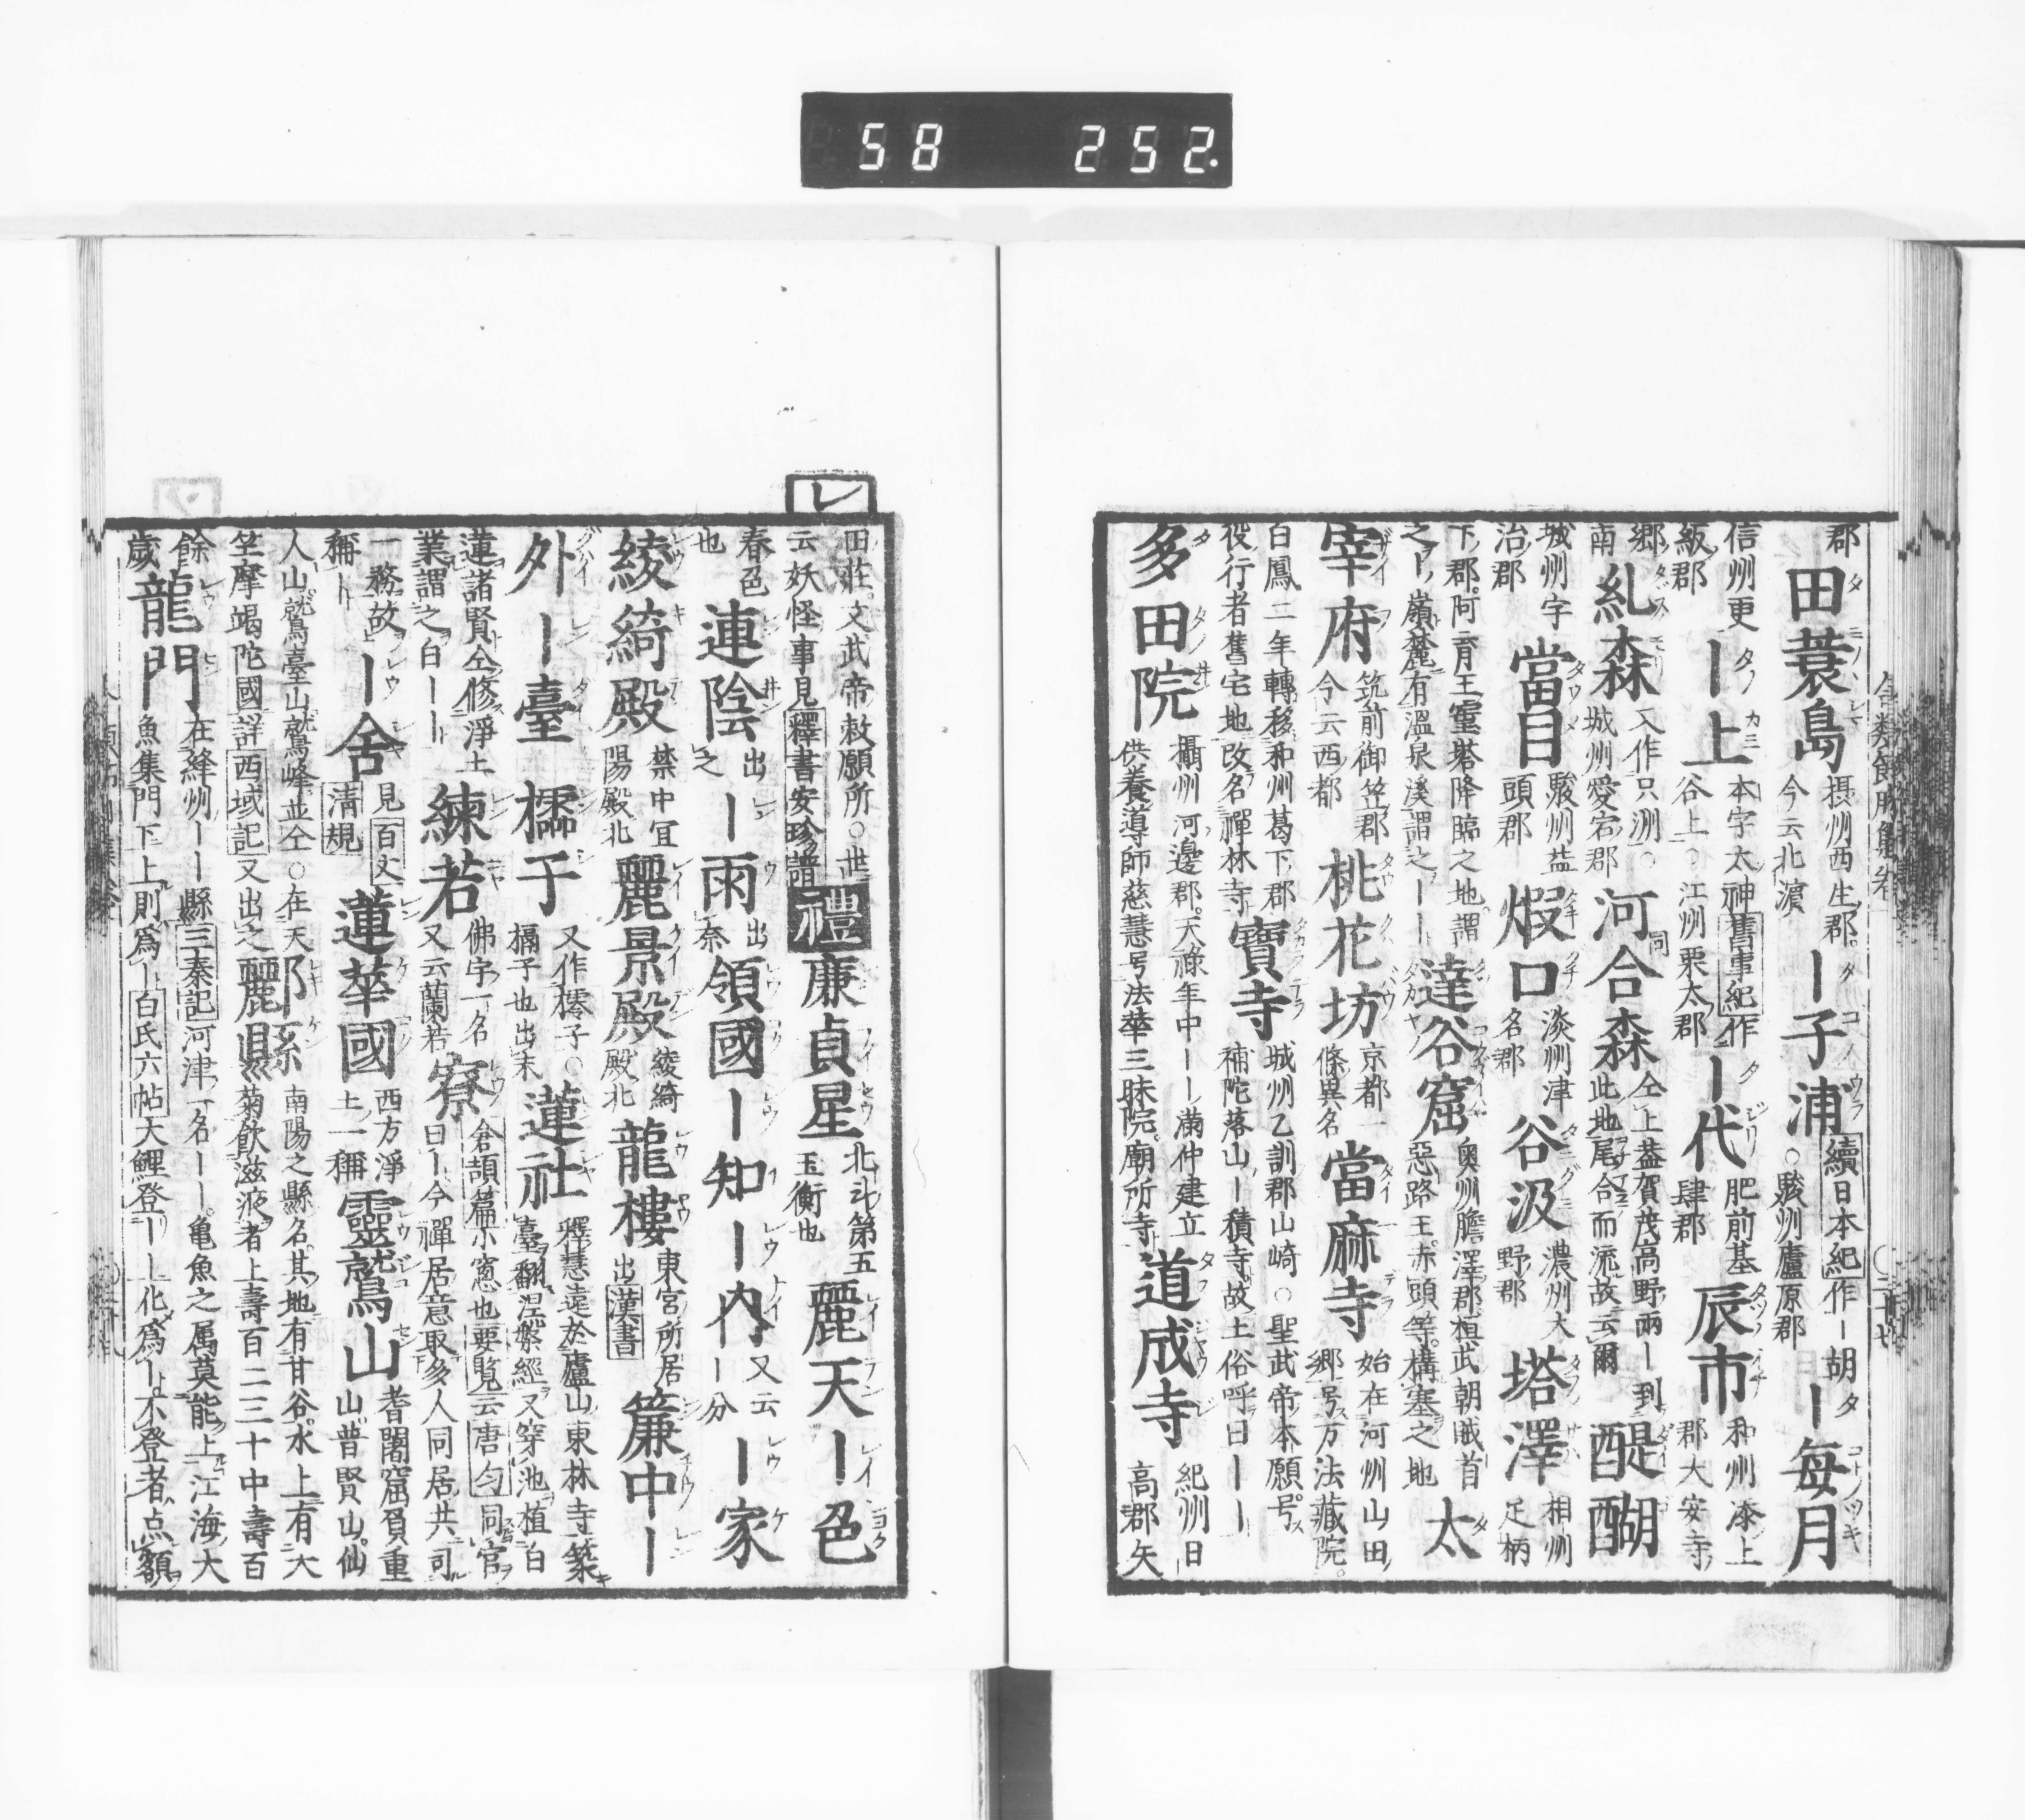 58 252.
郡 田蓑島 摂州西生郡。今云北濵 ー子浦 續日本紀作ー胡○駿州廬原郡 ー毎月
信州更級郡 ー上 本字太神舊事紀作谷上○江州栗太郡 ー代 肥前基肆郡 辰市 和州添上郡大安寺
郷南 糺森 又作只洲○城州愛宕郡 河合森 同 仝上葢賀茂高野兩ー到此地尾合而流故云爾 醍醐
城州宇治郡 當目 駿州益頭郡 煆口 淡州津名郡 谷汲 濃州大野郡 塔澤 相州足柄
下郡。阿育王霊塔降臨之地。謂之ー嶺麓有溫泉溪謂之ーー 達谷窟 奥州膽澤郡桓武朝賊首惡路王。赤頭等。構塞之地 太
宰府 筑前御笠郡今云西都 桃花坊 京都一條異名 當麻寺 始在河州山田郷号万法藏院。
白鳳二年轉移和州葛下郡役行者舊宅地改名禪林寺 寶寺 城州乙訓郡山崎○聖武帝本願号補陀落山ー積寺。故土俗呼曰ーー
多田院 攝州河邊郡。天祿年中ーー滿仲建立供養導師慈慧号法華三昧院。廟所寺 道成寺 紀州日高郡矢
レ
田莊。文武帝敕願所○世云妖怪事見釋書安珍譜 禮 廉貞星 北斗第五玉衡也 麗天 ー色
春色也 連陰 出之 ー雨 出泰 領國 ー知 ー内 又云ー分 ー家
綾綺殿 禁中冝陽殿北 麗景殿 綾綺殿北 龍樓 東宮所居出漢書 簾中 ー
外ー臺 櫺子 又作檽子○槅子也出末 蓮社 釋慧遠於廬山東林寺築臺翻涅槃經又穿池植白
蓮諸賢仝修淨土業謂之白ーー 練若 佛宇一名又云蘭若 寮 倉頡篇小窓也要覧云唐勻同官曰ー今禪居意取多人同居共司
一務故稱ー ー舍 見百丈清規 蓮華國 西方淨土一稱 靈鷲山 耆闍窟肎重山普賢山。仙
人山鷲臺山鷲峰並仝○在天竺摩竭陀國詳西域記又出之 酈縣 南陽之縣名。其地有甘谷。水上有大菊飲滋液者上壽百二三十中壽百
餘歲 龍門 在絳州ーー縣三秦記河津一名ーー。亀魚之属莫能上江海大魚集門下上則爲ー白氏六帖大鯉登ーー化爲ー不登者点額